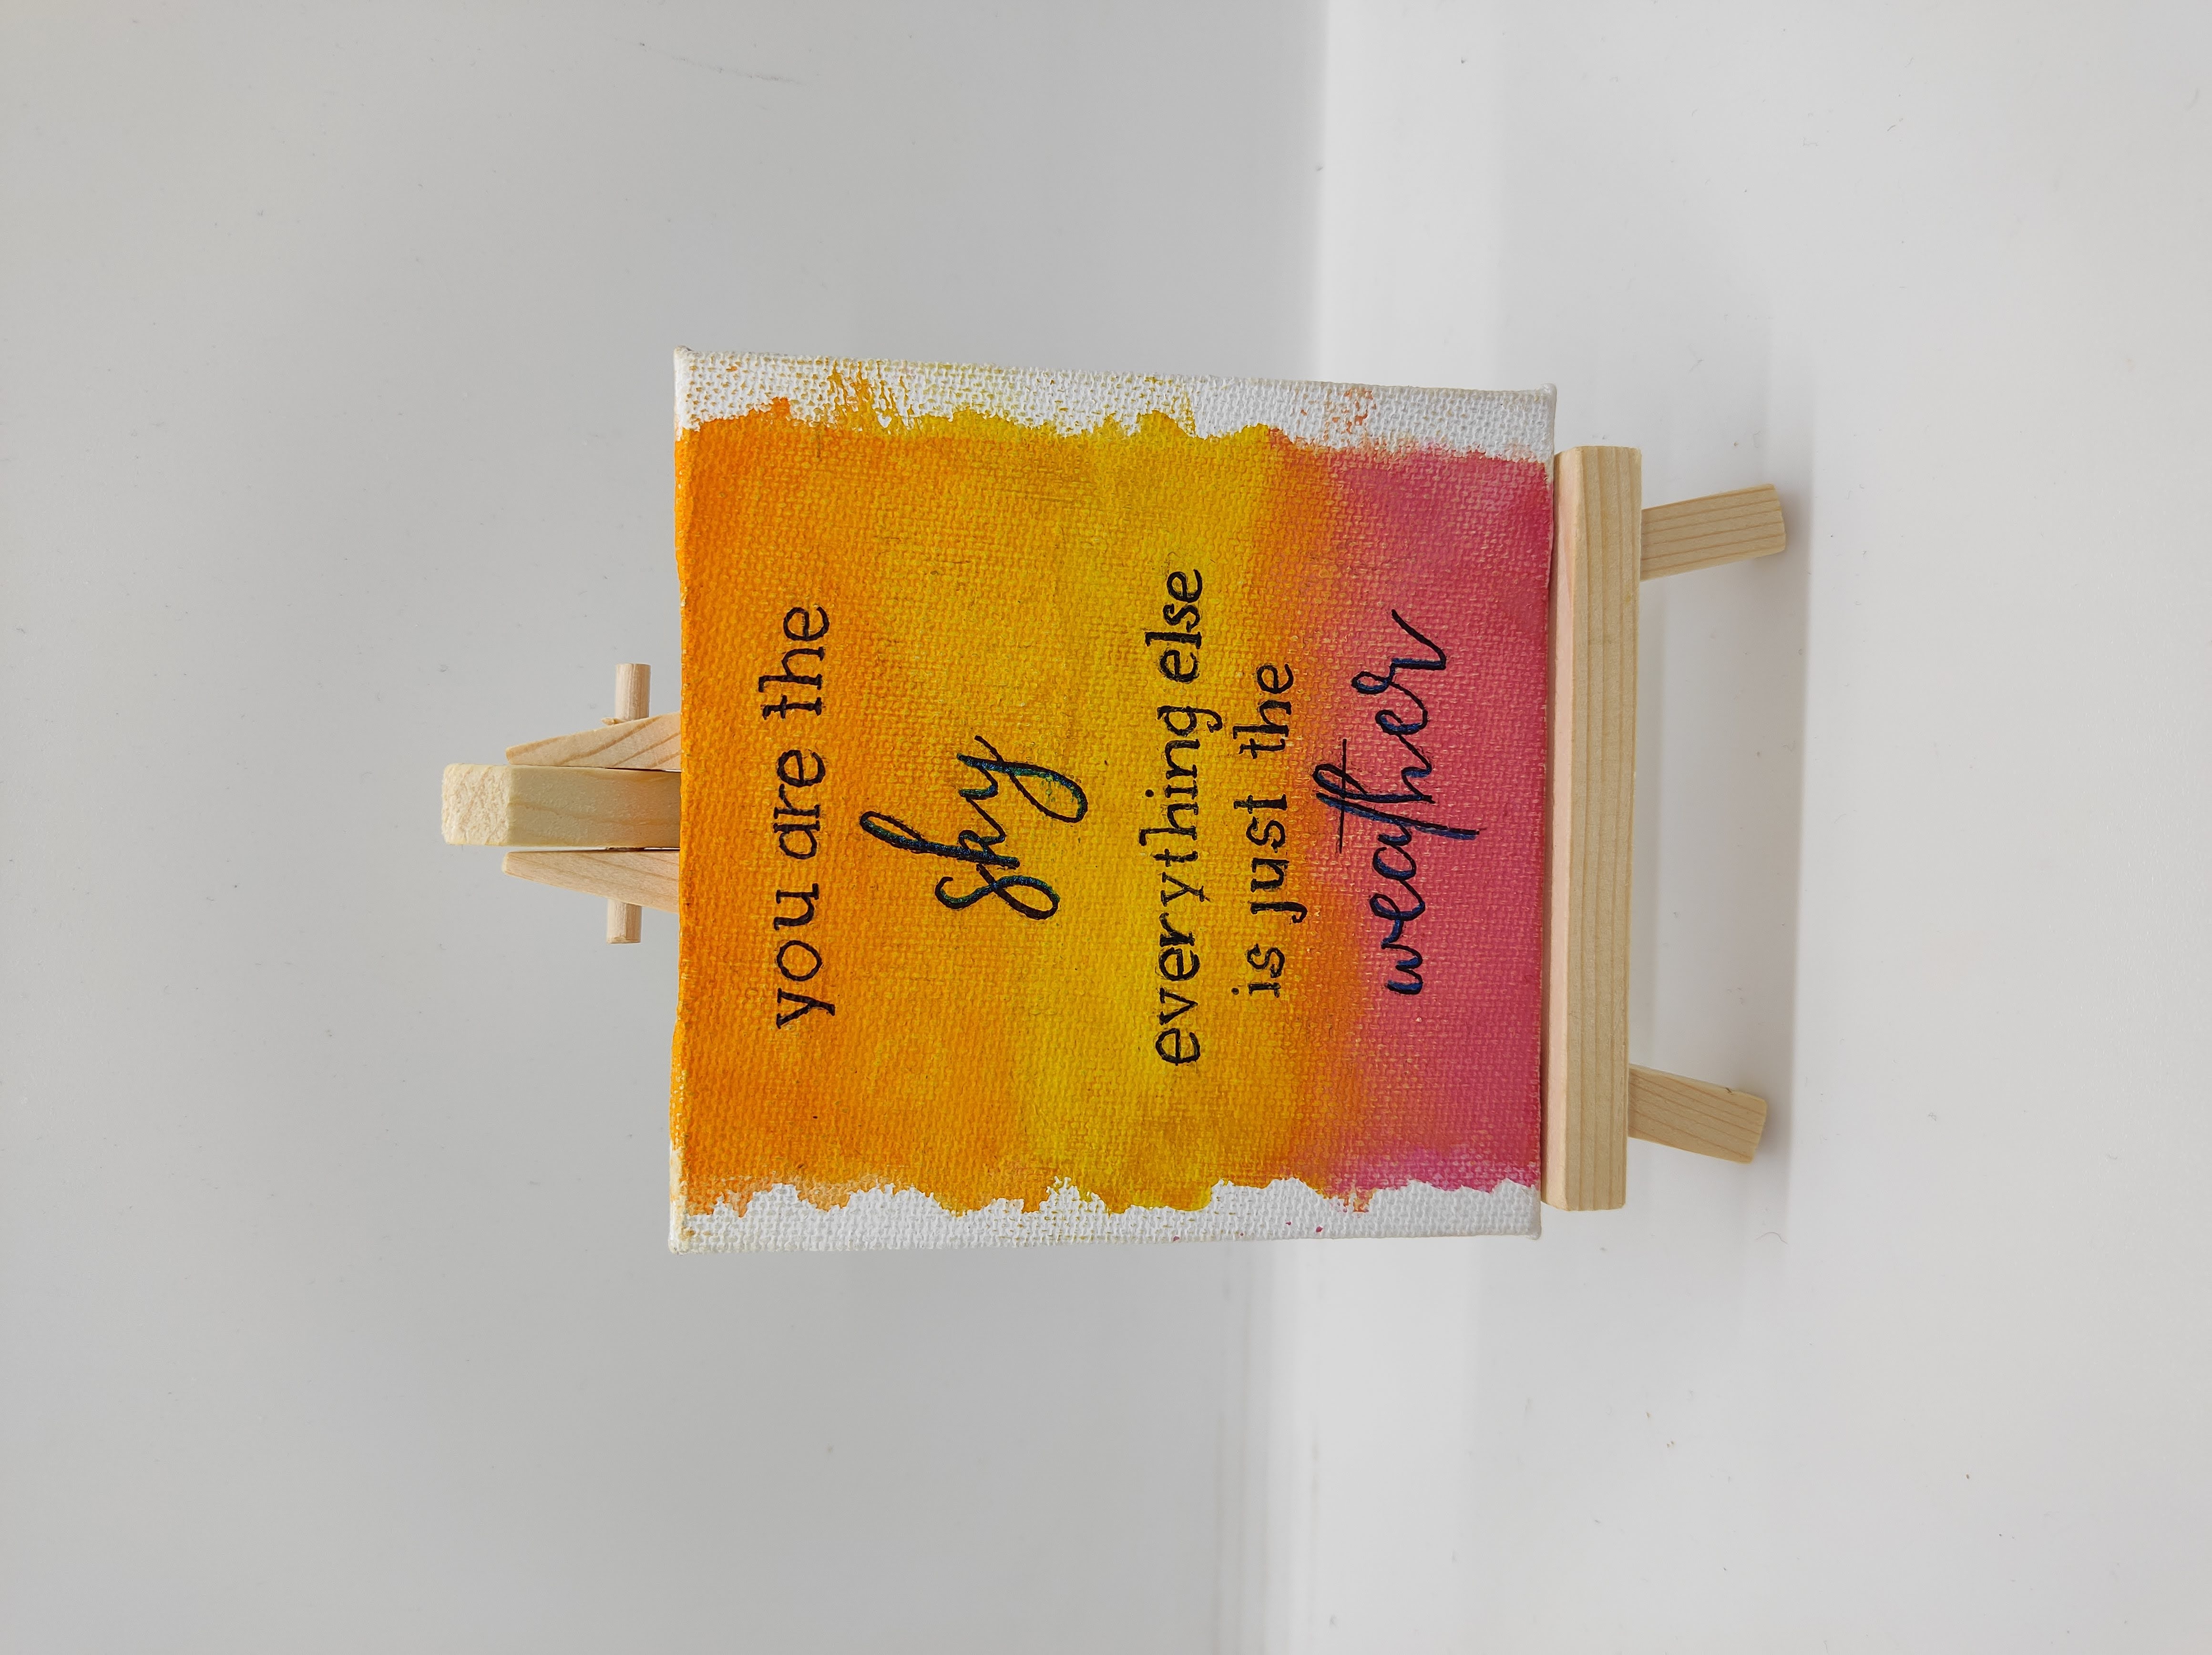 you are the
sky
everything else
is just the
weather